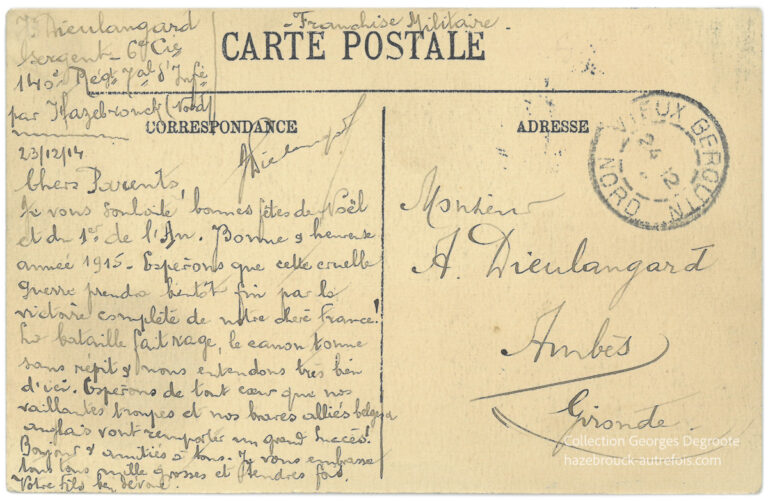 Franchise Militaire
J. Dieulangard
Sergent 6e Cie
140e Régt Tal d'Infie
par Hazebrouck (Nord)
CARTE POSTALE
CORRESPONDANCE
ADRESSE
23/12/14
Chers Parents,
Je vous souhaite bonnes fêtes de Noël
et du 1er de l'An. Bonne & heureuse
année 1915. Espérons que cette cruelle
guerre prendra bientôt fin par la
victoire complète de notre chère France!
La bataille fait rage, le canon tonne
sans répit & nous entendons très bien
d'ici. Espérons de tout cœur que nos
vaillantes troupes et nos braves alliés belges &
anglais vont remporter un grand succès!
Bonjour & amitiés à tous. Je vous embrasse
tous mille grosses et tendres fois.
Votre fils bien dévoué.
VIEUX BERQUIN
24 12
NORD
Monsieur
A. Dieulangard
Ambès
Gironde
Collection Georges Degroote
hazebrouck-autrefois.com